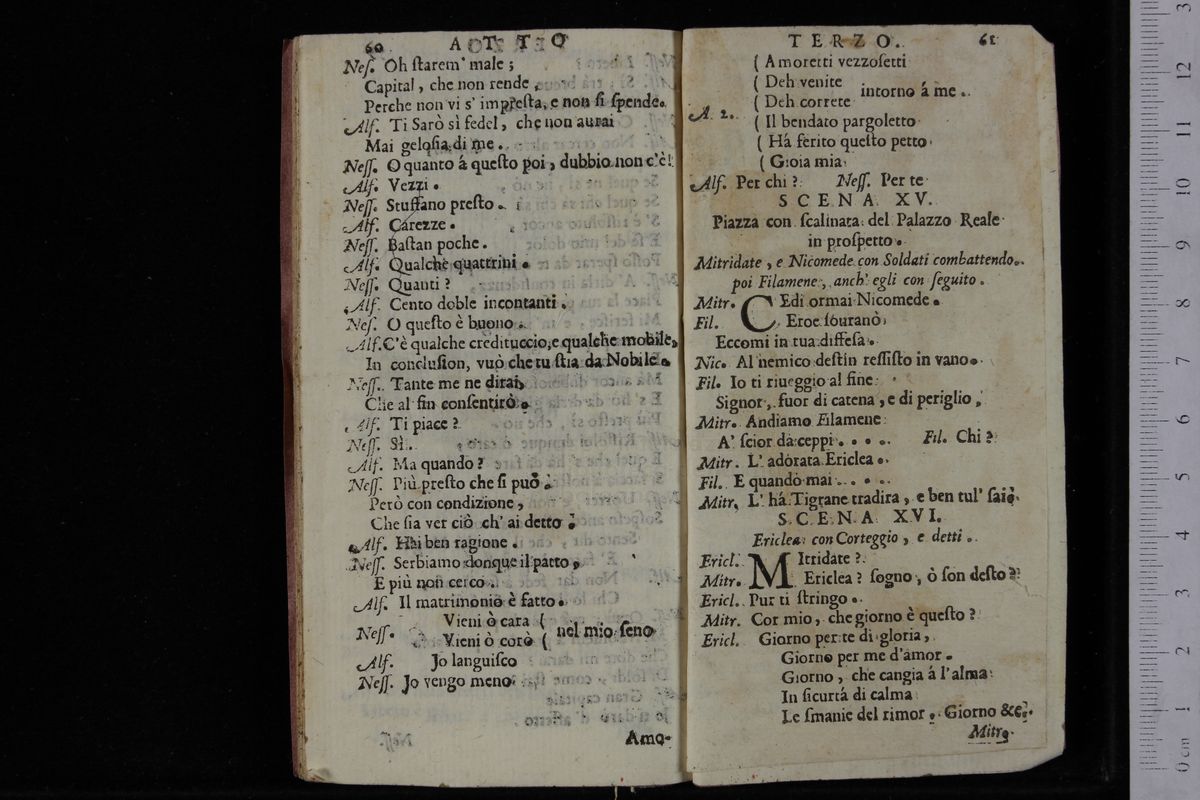 60 ATTO
Neſ. Oh ſtarem' male;
Capital, che non rende,
Perche non vi s' impreſta, e non ſi ſpende.
Alf. Ti Sarò sì fedel, che non aurai
Mai geloſia di me.
Neſſ. O quanto á queſto poi, dubbio non c'è!
Alf. Vezzi.
Neſſ. Stuffano preſto.
Alf. Carezze.
Neſſ. Baſtan poche.
Alf. Qualche quattrini.
Neſſ. Quanti?
Alf. Cento doble incontanti.
Neſ. O queſto è buono.
Alf. C'è qualche credituccio, e qualche mobile,
In concluſion, vuò che tu ſtia da Nobile.
Neſſ. Tante me ne dirai,
Che al fin conſentirò.
Alf. Ti piace?
Neſſ. Sì.
Alf. Ma quando?
Neſſ. Più preſto che ſi può.
Però con condizione,
Che ſia ver ciò ch' ai detto.
Alf. Hai ben ragione.
Neſſ. Serbiamo donque il patto,
E più non cerco.
Alf. Il matrimonio è fatto.
Vieni ò cara (
Neſſ. nel mio ſeno
Vieni ò corò (
Alf. Jo languiſco
Neſſ. Jo vengo meno.
Amo-
TERZO. 61
( Amoretti vezzoſetti
( Deh venite
intorno á me.
( Deh correte
A 2.
( Il bendato pargoletto
( Há ferito queſto petto
( Gioia mia
Alf. Per chi? Neſſ. Per te
SCENA XV.
Piazza con ſcalinata del Palazzo Reale
in proſpetto.
Mitridate, e Nicomede con Soldati combattendo.
poi Filamene, anch' egli con ſeguito.
Mitr. CEdi ormai Nicomede.
Fil. Eroe ſourano,
Eccomi in tua diffeſa.
Nic. Al nemico deſtin reſſiſto in vano.
Fil. Io ti riueggio al fine
Signor, fuor di catena, e di periglio,
Mitr. Andiamo Filamene
A' ſcior da ceppi.... Fil. Chi?
Mitr. L' adorata Ericlea.
Fil. E quando mai....
Mitr. L' há Tigrane tradira, e ben tul' ſai.
SCENA XVI.
Ericlea con Corteggio, e detti.
Ericl. MItridate?
Mitr. Ericlea? ſogno, ò ſon deſto?
Ericl. Pur ti ſtringo.
Mitr. Cor mio, che giorno è queſto?
Ericl. Giorno per te di gloria,
Giorno per me d'amor.
Giorno, che cangia á l'alma
In ſicurtá di calma
Le ſmanie del rimor. Giorno &c.
Mitr.